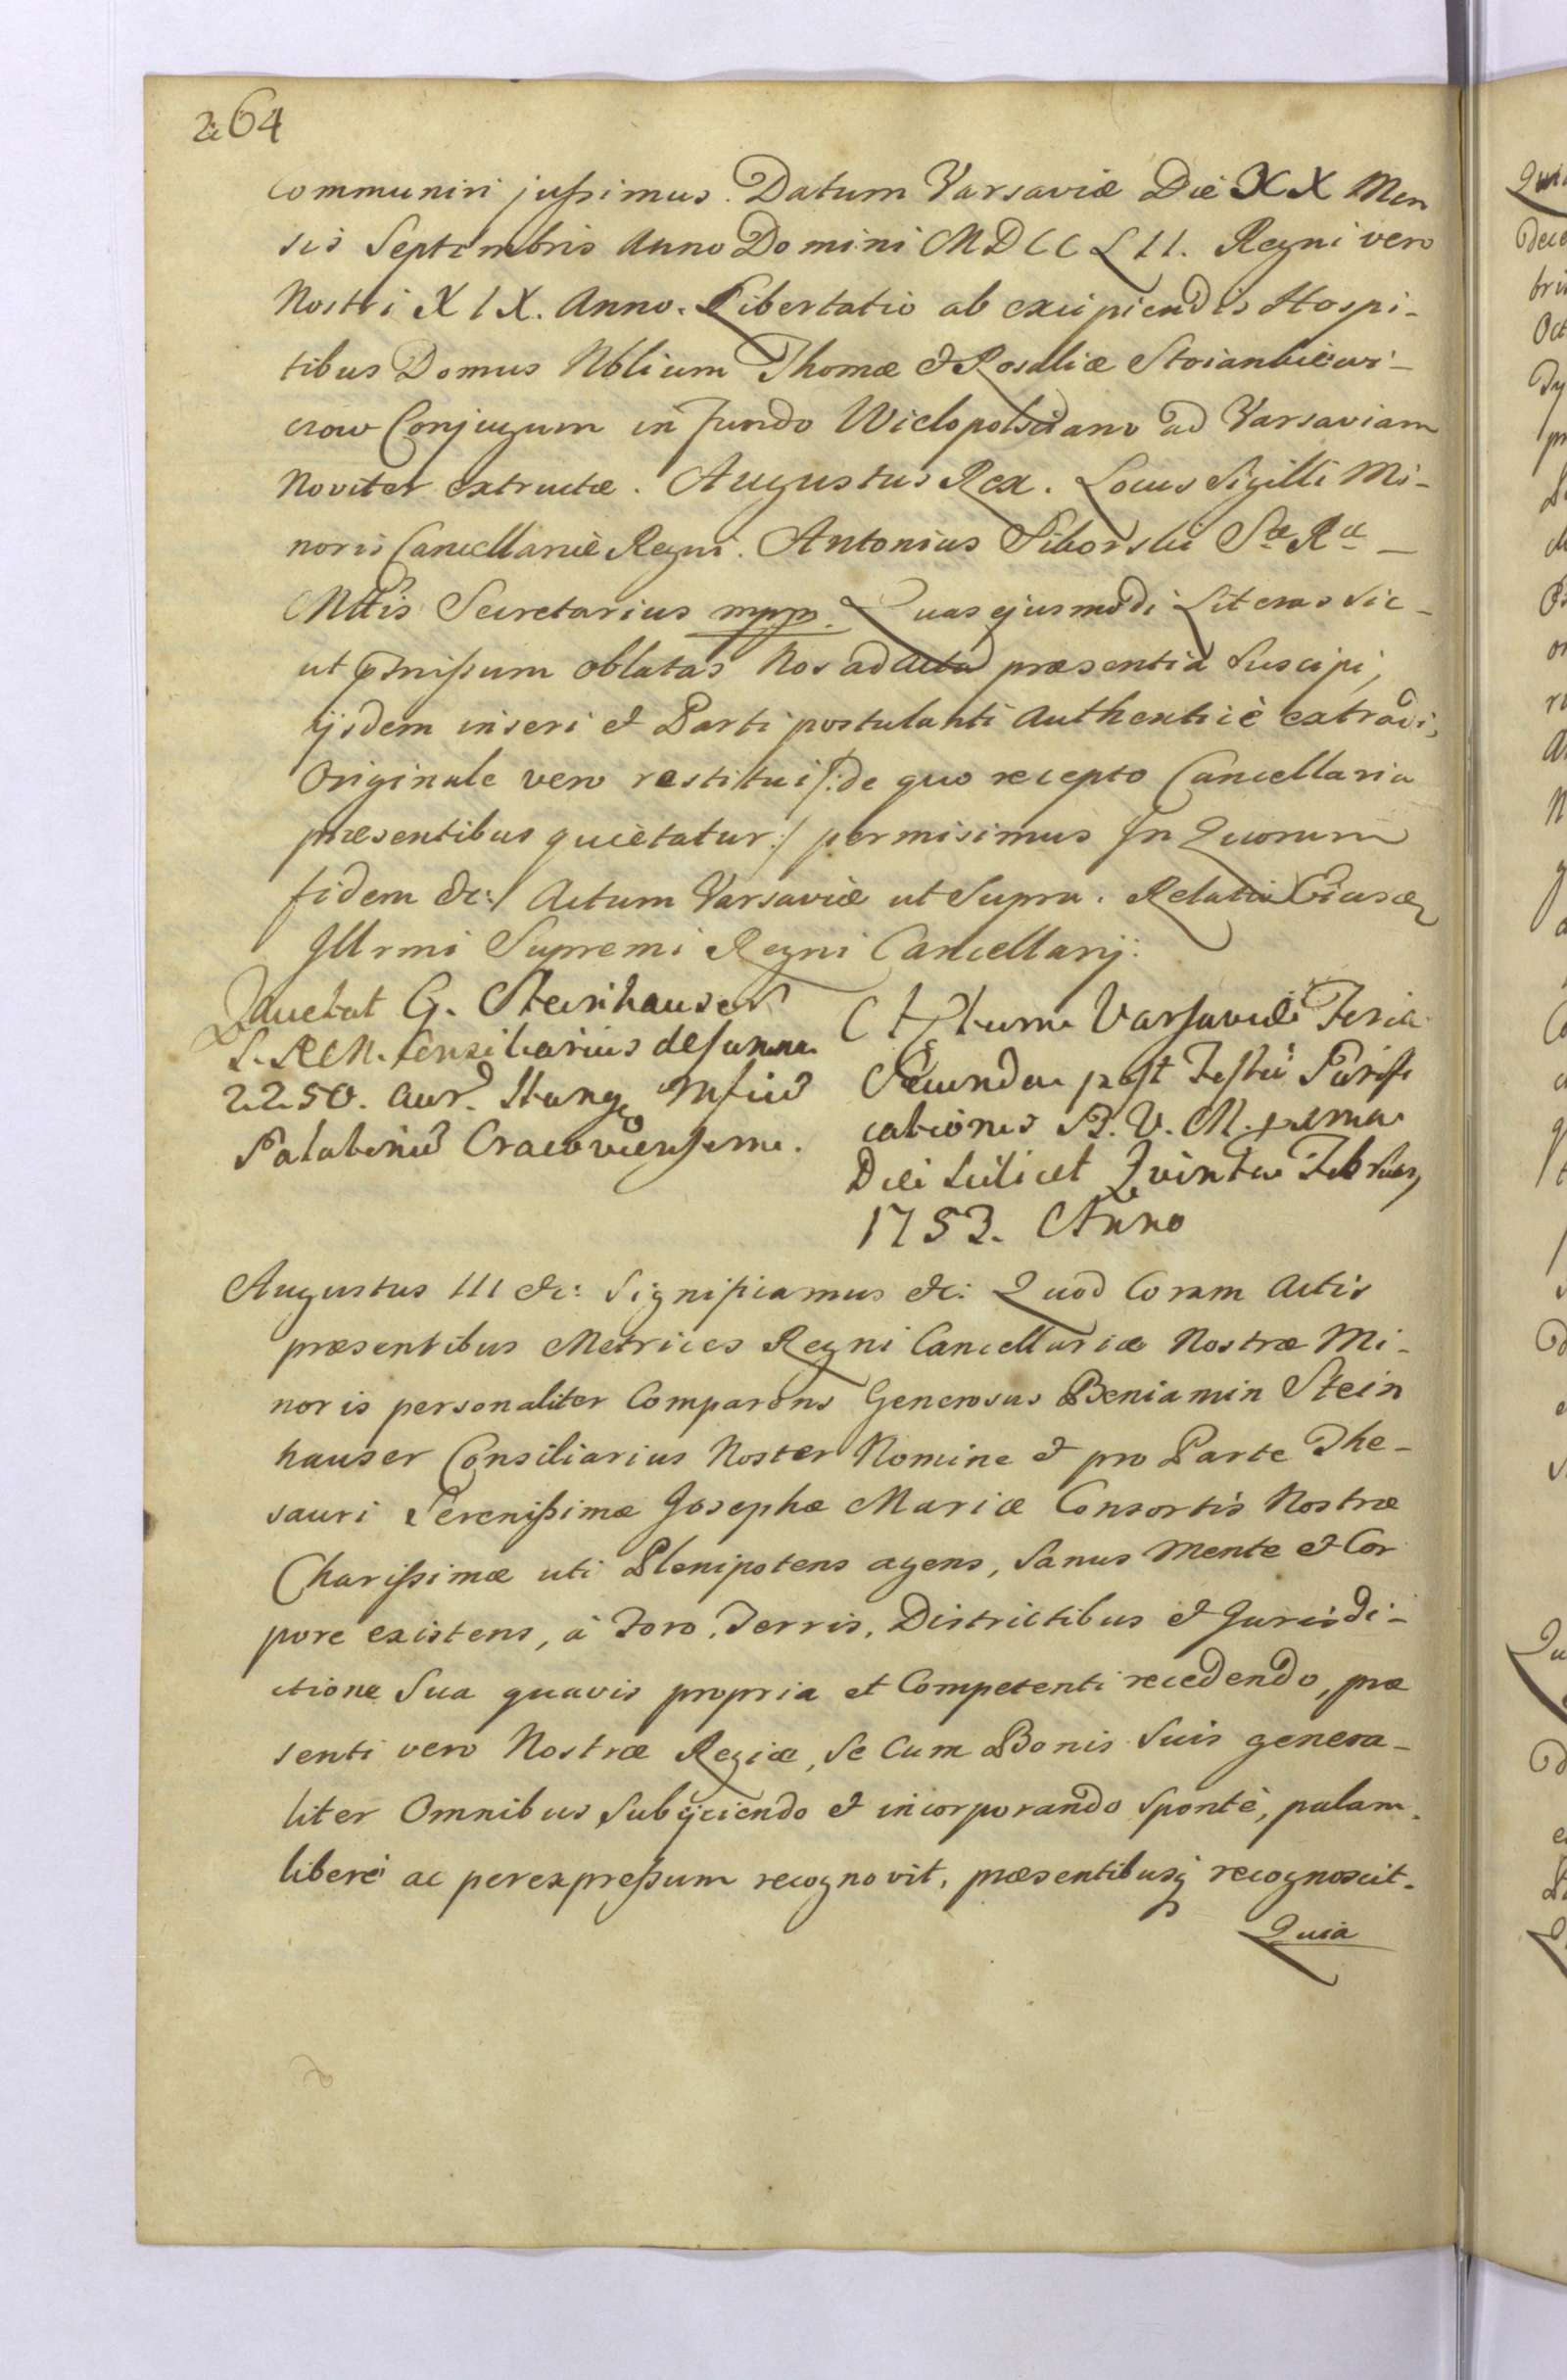 264
Communiri jussimus. Datum Varsaviæ Die XX Men
sis Septembris Anno Domini MDCCLII. Regni vero
Nostri XIX. Anno. Libertatio ab excipiendis Hospi-
tibus Domus Nblium Thomæ & Rosaliæ Stoiankiewi-
czow Conjugum in fundo Wielopolsciano ad Varsaviam
Noviter extructæ. Augustus Rex. Locus Sigilli Mi-
noris Cancellariæ Regni. Antonius Siborski Sæ Ræ
Mttis Secretarius mpp. Quas ejusmodi Literas sic-
ut pmissum oblatas Nos ad Acta præsentia Suscipi,
ijsdem inseri & Parti postulanti Authenticè extradi,
Originale vero restitui /:de quo recepto Cancellaria
præsentibus quietatur:/ permisimus In Quorum
fidem &c:/ Actum Varsaviæ ut Supra. Relatio
Illrmi Supremi Regni Cancellarij.
Quietat G. Steinhauser
S. R. M. Consiliarius de summa
2250. aur. Hung
Palatinū Cracoviensem.
Actum Varsaviæ Feria
Secunda post Festū Purifi
cationis B. V. M. pxma
Die Scilicet Quinta Februarij
1753. Anno
Augustus III &c: Significamus &c: Quod Coram Actis
præsentibus Metrices Regni Cancellariæ Nostræ Mi-
noris personaliter Comparens Generosus Beniamin Stein
hauser Consiliarius Noster Nomine & pro Parte The-
sauri Serenissimæ Josephæ Mariæ Consortis Nostræ
Charissimæ uti Plenipotens agens, Sanus Mente & Cor
pore existens, à Foro, Terris, Districtibus & Jurisdi-
ctione Sua quavis propria et Competenti recedendo, præ
senti vero Nostræ Regiæ, Se Cum Bonis Suis genera-
liter Omnibus Subijciendo & incorporando Spontè, palam
liberè ac per expressum recognovit, præsentibusq recognoscit.
Quia